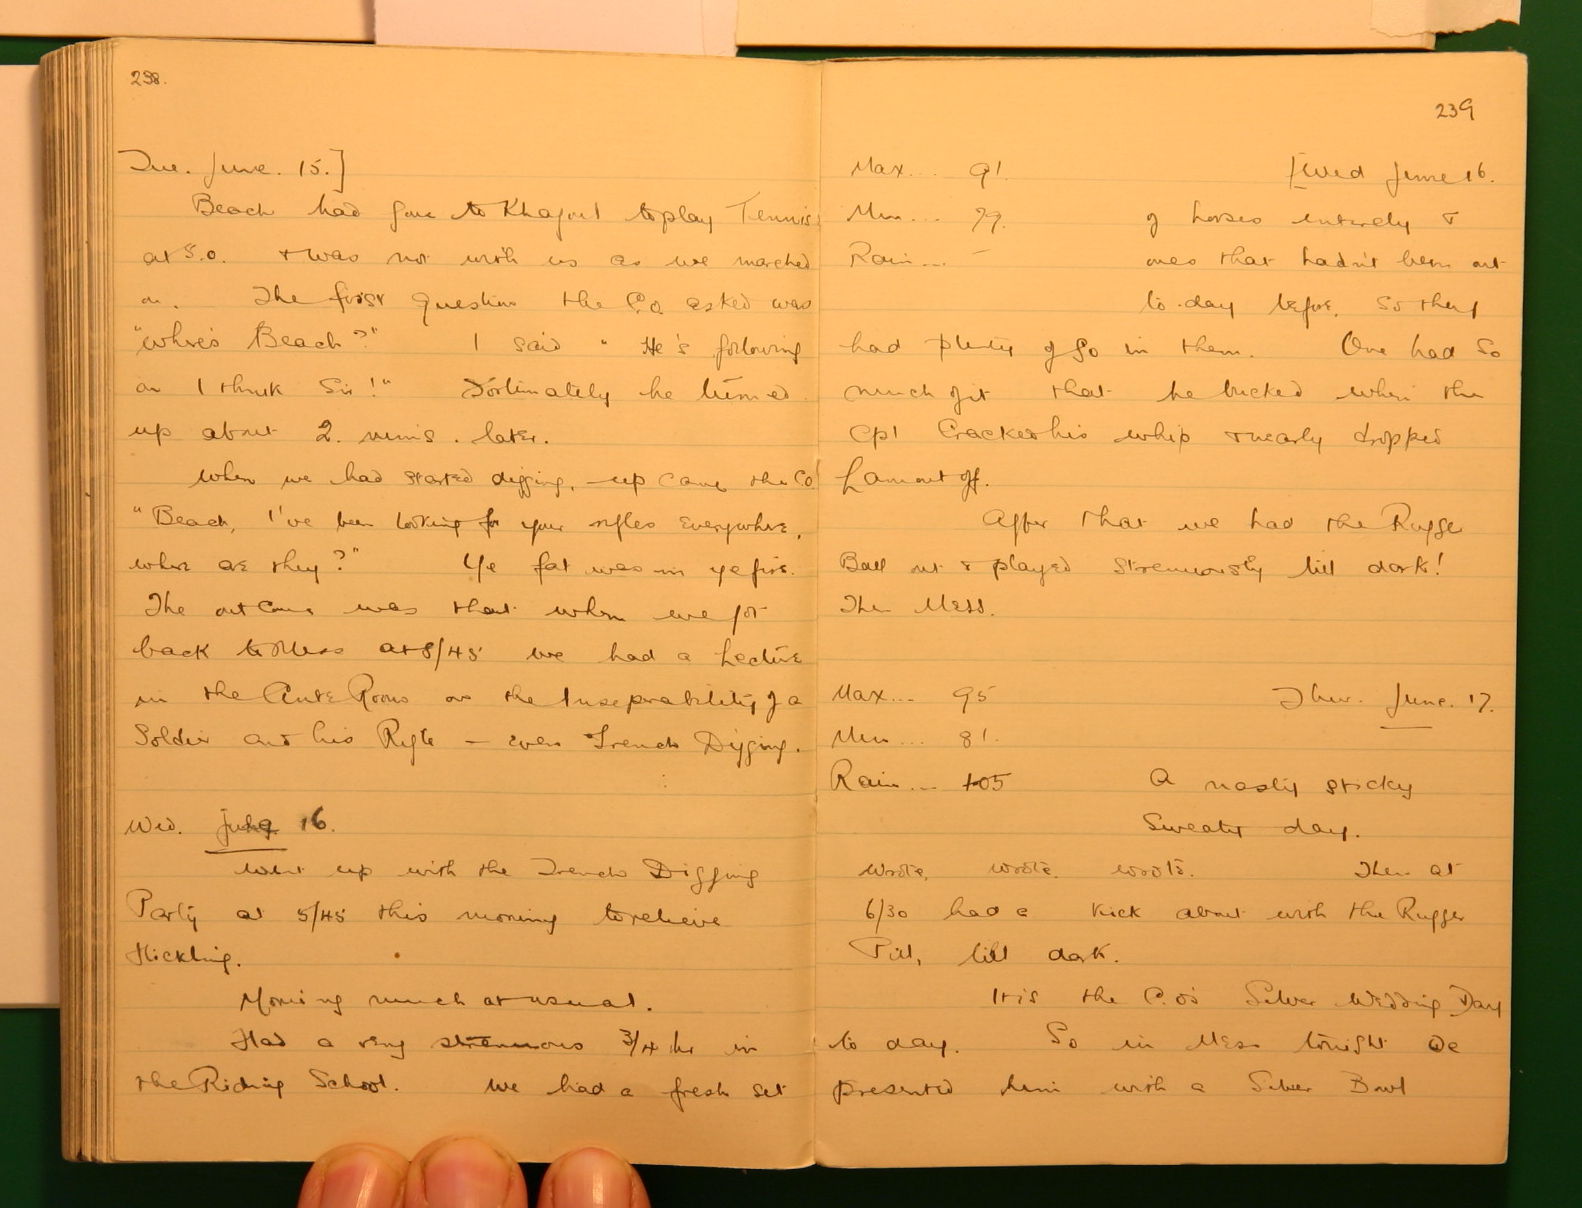 238.
Tue. June. 15.]
Beach had gone to Khagoul to play Tennis
at 5.0. & was not with us as we marched
on. The first question the C.O. asked was
"Where's Beach?" I said "He's following
on I think Sir!" Fortunately he turned
up about 2. mins. later.
When we had started digging, up came the CO.
"Beach, I've been looking for your rifles everywhere,
where are they?" Ye fat was in ye fire.
The outcome was that when we got
back to Mess at 8/45 we had a Lecture
in the Ante Room on the Inseprability of a
Soldier and his Rifle – even Trench Digging.
Wed. June 16.
Went up with the Trench Digging
Party at 5/45 this morning to relieve
Hickling.
Morning much as usual.
Had a very strenuous 3/4 hr in
the Riding School. We had a fresh set
239
Max... 91. [Wed June 16.
Min... 79. of horses entirely &
Rain... – ones that hadn't been out
to-day before, so they
had plenty of go in them. One had so
much of it that he bucked when the
Cpl Cracked his whip & nearly dropped
Lamont off.
After that we had the Rugger
Ball out & played strenuously till dark!
Then Mess.
Max... 95 Thur. June. 17.
Min... 81.
Rain... .05 A nasty sticky
Sweaty day.
Wrote, wrote, wrote. Then at
6/30 had a kick about with the Rugger
Pill, till dark.
It is the C.O's Silver Wedding Day
to day. So in Mess tonight we
presented him with a Silver Bowl